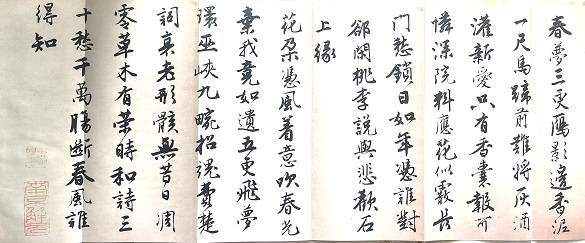 春夢三更鴈影邊香泥
一尺馬蹄前難將灰酒
灌新愛只有香囊報可
憐深院料應花似霰長
門愁鎖日如年憑誰對
卻閑桃李說與悲歡石
上緣
花朶憑風着意吹春光
棄我竟如遺五更飛夢
環巫峽九畹招魂費楚
詞衰老形骸無昔日凋
零草木有榮時和詩三
十愁千萬腸斷春風誰
得知